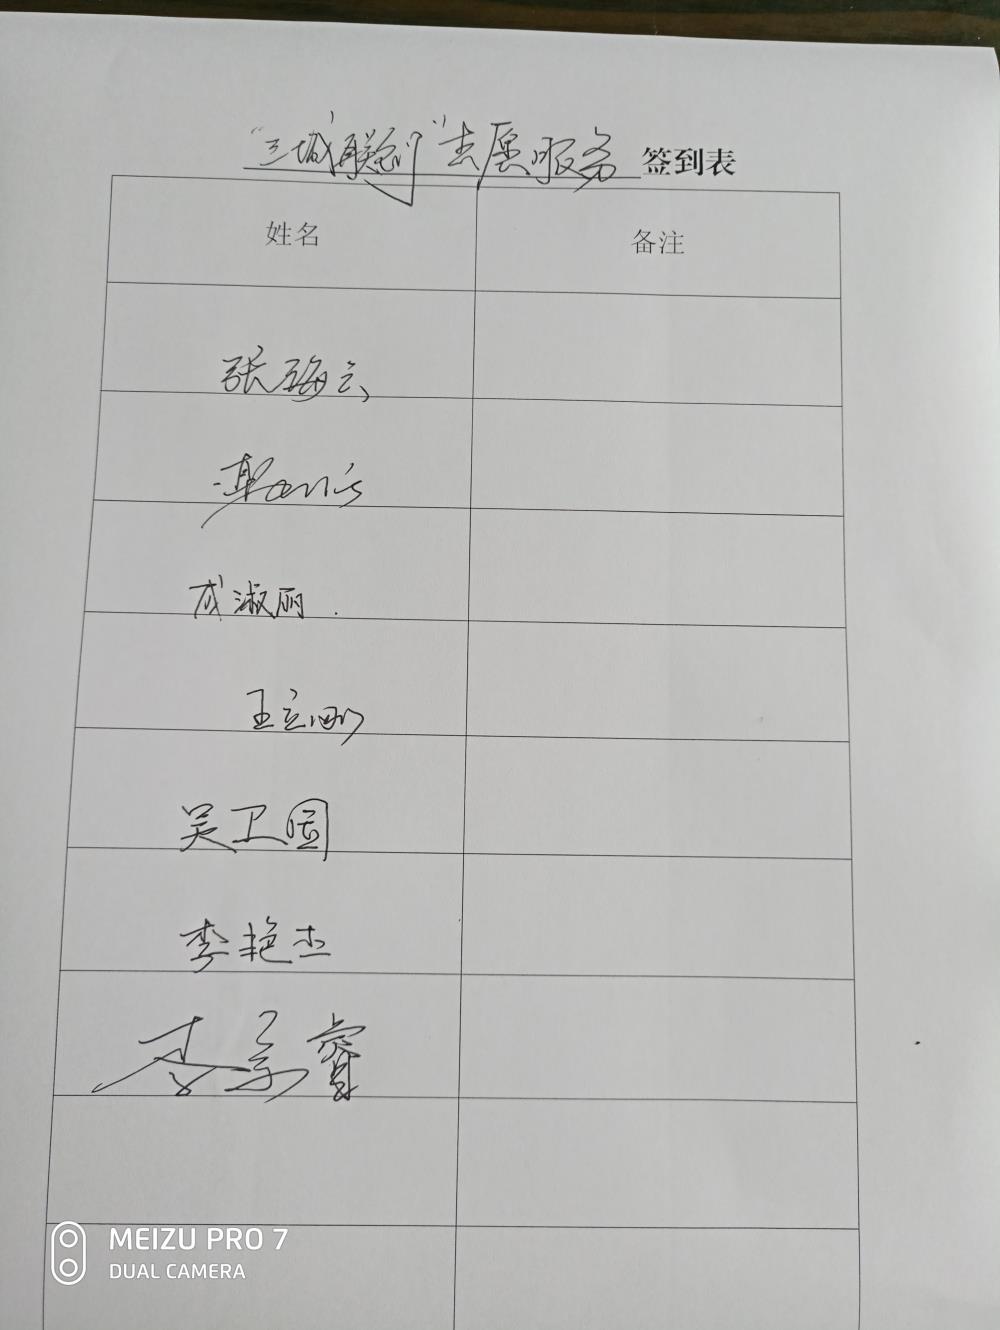 "三城联创"志愿服务 签到表
姓名 备注
张海云
成淑丽
王立刚
吴卫国
李艳杰
李景睿
MEIZU PRO 7
DUAL CAMERA